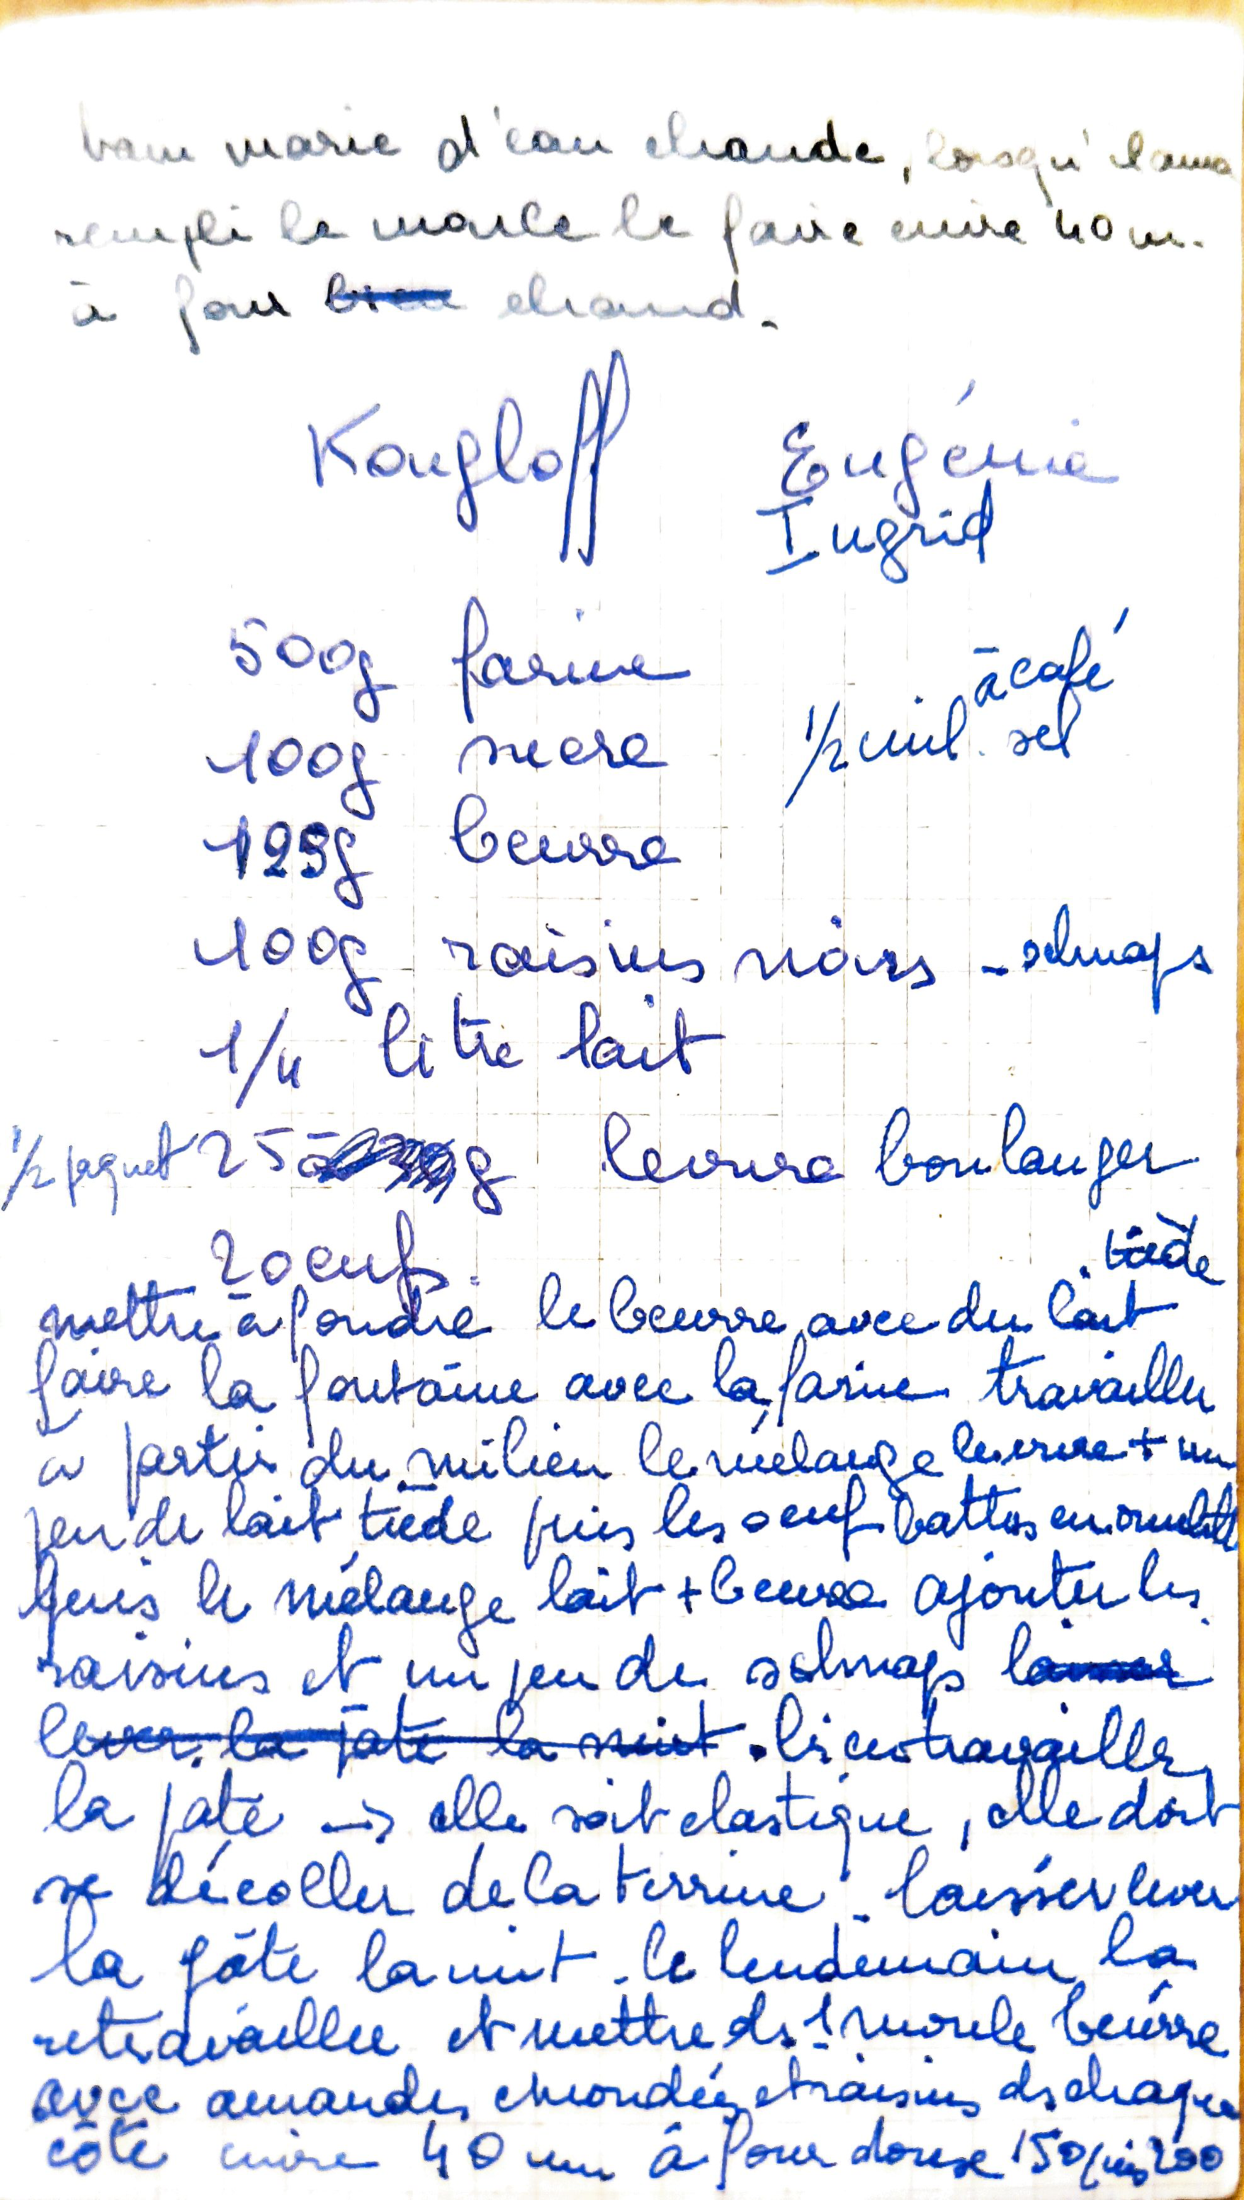 bain marie d'eau chaude, lorsqu'
rempli le moule le faire cuire 40 m.
à four chaud.
Kougloff Eugénie
Ingrid
500g farine
à café
100g sucre 1/2 cuil. sel
125g beurre
100g raisins noirs - schnaps
1/4 litre lait
1/2 paquet 25 à g levure boulanger
2 oeufs.
tiède
mettre à fondre le beurre avec du lait
faire la fontaine avec la farine travailler
à partir du milieu le mélange levure + un
peu de lait tiède puis les oeufs battus en omelette
puis le mélange lait + beurre ajouter les
raisins et un peu de schnaps laisser
lever la pâte la nuit. bien travailler
la pâte → elle soit élastique, elle doit
se décoller de la terrine - laisser lever
la pâte la nuit - le lendemain la
retravailler et mettre ds 1 moule beurré
avec amandes émondées et raisins ds chaque
côte cuire 40 mn à four doux 150 puis 200